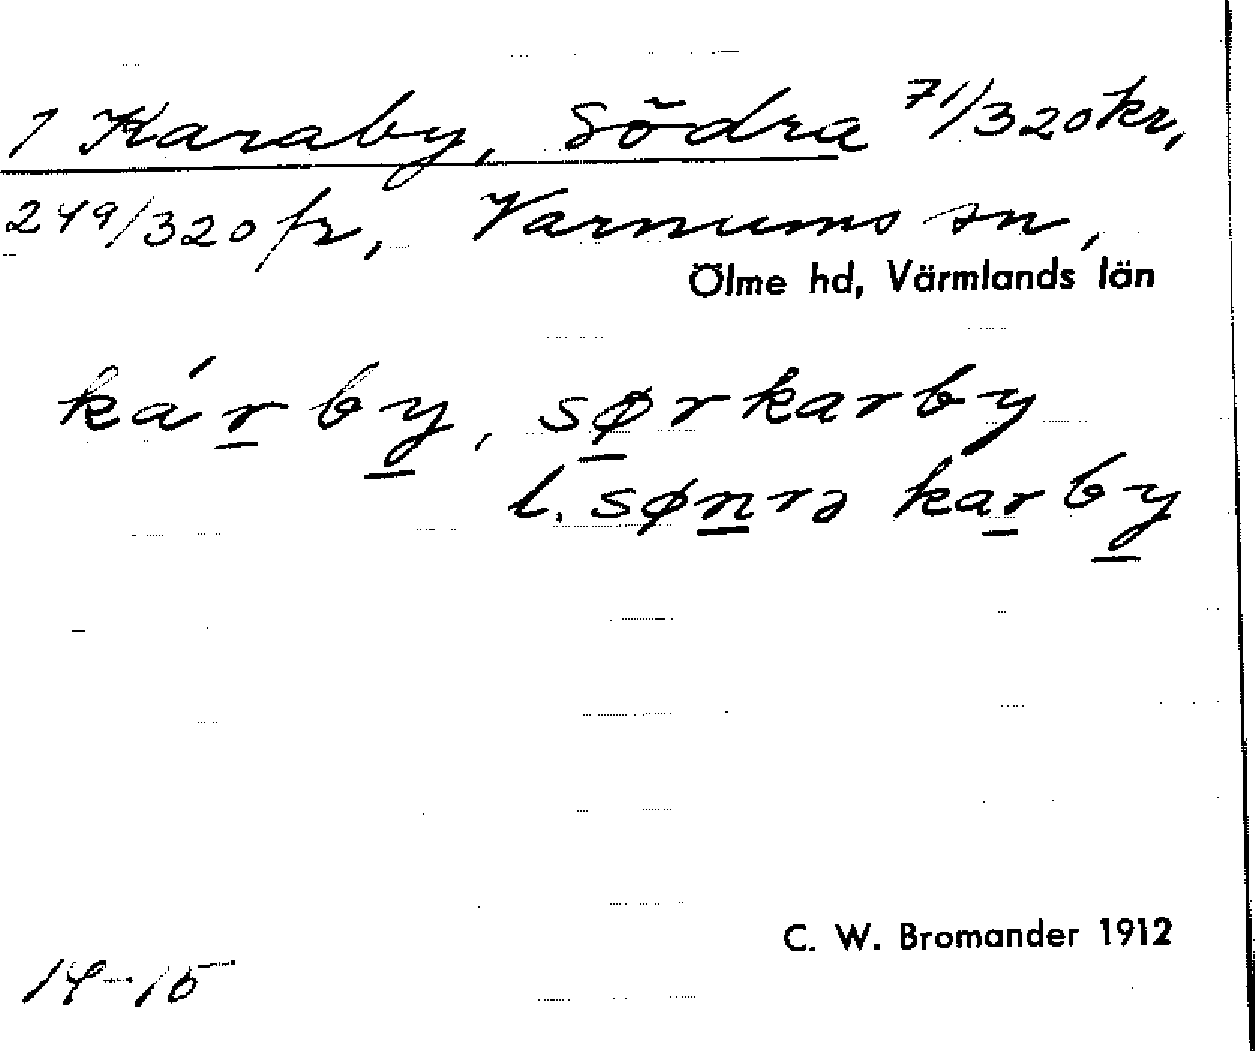 1 Karaby, Södra 71/320 kr,
249/320 fr, Varnums sn,
Ölme hd, Värmlands län
kárby, sørkarby
l. sønrə karby
C. W. Bromander 1912
14-15